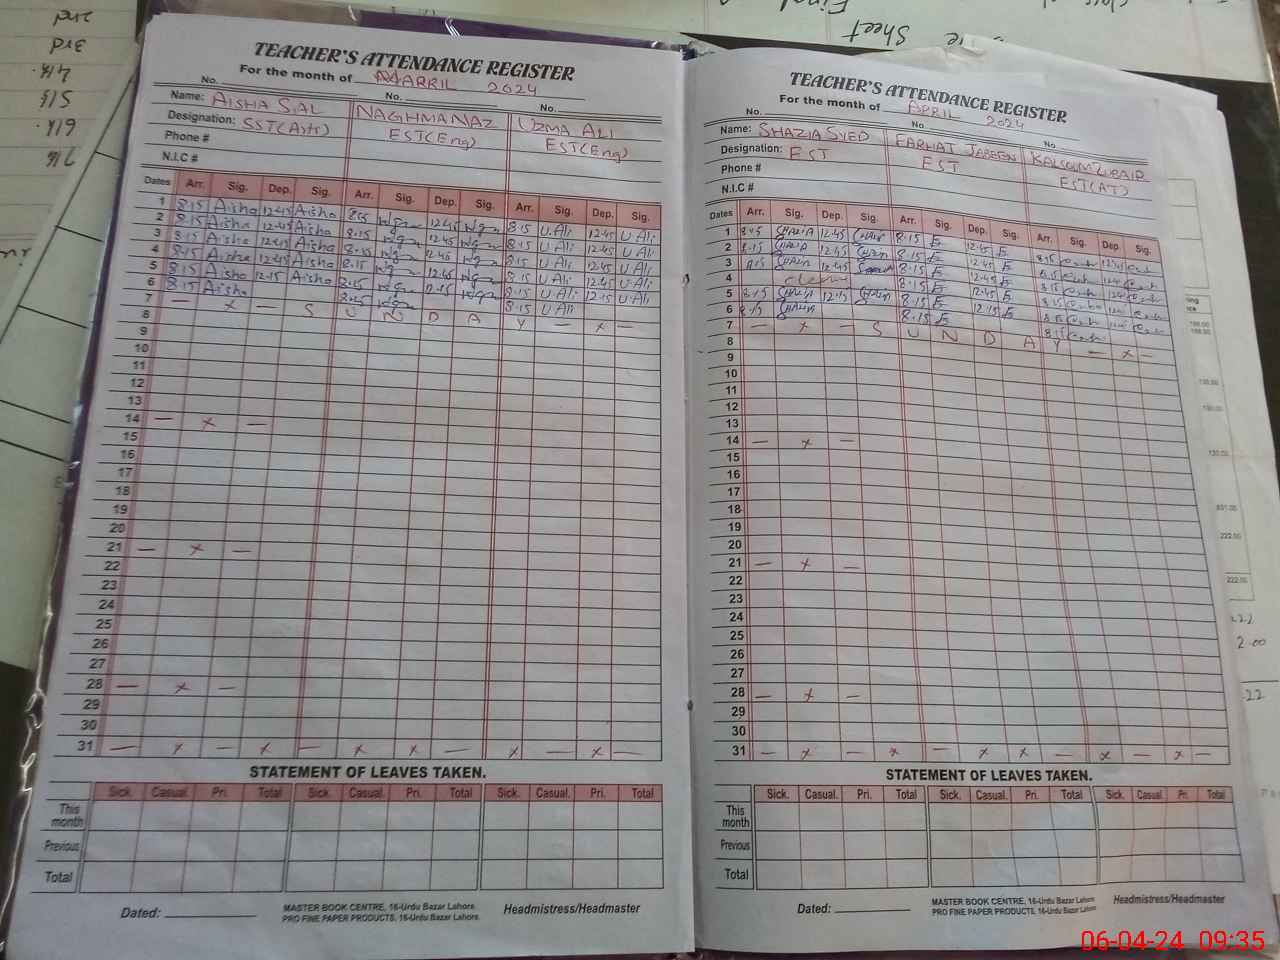 TEACHER'S ATTENDANCE REGISTER
For the month of APRIL 2024
No. No. No.
Name: AISHA SIAL NAGHMANAZ UZMA ALI
Designation: SST(Arts) EST(Eng) EST(Eng)
Phone #
N.I.C #
Dates Arr. Sig. Dep. Sig. Arr. Sig. Dep. Sig. Arr. Sig. Dep. Sig.
1 8.15 Aisha 12.45 Aisha 8.15 12.45 8.15 U.Ali 12.45 U.Ali
2 8.15 Aisha 12.45 Aisha 8.15 12.45 8.15 U.Ali 12.45 U.Ali
3 8.15 Aisha 12.45 Aisha 8.15 12.45 8.15 U.Ali 12.45 U.Ali
4 8.15 Aisha 12.45 Aisha 8.15 12.45 8.15 U.Ali 12.45 U.Ali
5 8.15 Aisha 12.15 Aisha 8.15 12.15 8.15 U.Ali 12.15 U.Ali
6 8.15 Aisha 8.15 8.15 U.Ali
7 — x — S U N D A Y — x —
8
9
10
11
12
13
14 — x —
15
16
17
18
19
20
21 — x —
22
23
24
25
26
27
28 — x —
29
30
31 — x — x — x x — x — x —
STATEMENT OF LEAVES TAKEN.
Sick. Casual. Pri. Total Sick. Casual. Pri. Total Sick. Casual. Pri. Total
This month
Previous
Total
Dated: MASTER BOOK CENTRE, 16-Urdu Bazar Lahore. Headmistress/Headmaster
PRO FINE PAPER PRODUCTS, 16-Urdu Bazar Lahore.
TEACHER'S ATTENDANCE REGISTER
For the month of APRIL 2024
No. No. No.
Name: SHAZIA SYED FARHAT JABEEN KALSOOM ZUBAIR
Designation: EST EST EST(AT)
Phone #
N.I.C #
Dates Arr. Sig. Dep. Sig. Arr. Sig. Dep. Sig. Arr. Sig. Dep. Sig.
1 8.15 12.45 8.15 12.45 8.15 12.45
2 8.15 12.45 8.15 12.45 8.15
3 8.15 12.45 8.15 12.45 8.15
4 8.15 12.45 8.15
5 8.15 12.15 8.15 12.15 8.15
6 8.15 8.15 8.15
7 — x — S U N D A Y — x —
8
9
10
11
12
13
14 — x —
15
16
17
18
19
20
21 — x —
22
23
24
25
26
27
28 — x —
29
30
31 — x — x — x x — x — x —
STATEMENT OF LEAVES TAKEN.
Sick. Casual. Pri. Total Sick. Casual. Pri. Total Sick. Casual. Pri. Total
This month
Previous
Total
Dated: MASTER BOOK CENTRE, 16-Urdu Bazar Lahore. Headmistress/Headmaster
PRO FINE PAPER PRODUCTS, 16-Urdu Bazar Lahore.
Final
Sheet
3rd
4th
5th
6th
7th
222.00
06-04-24 09:35